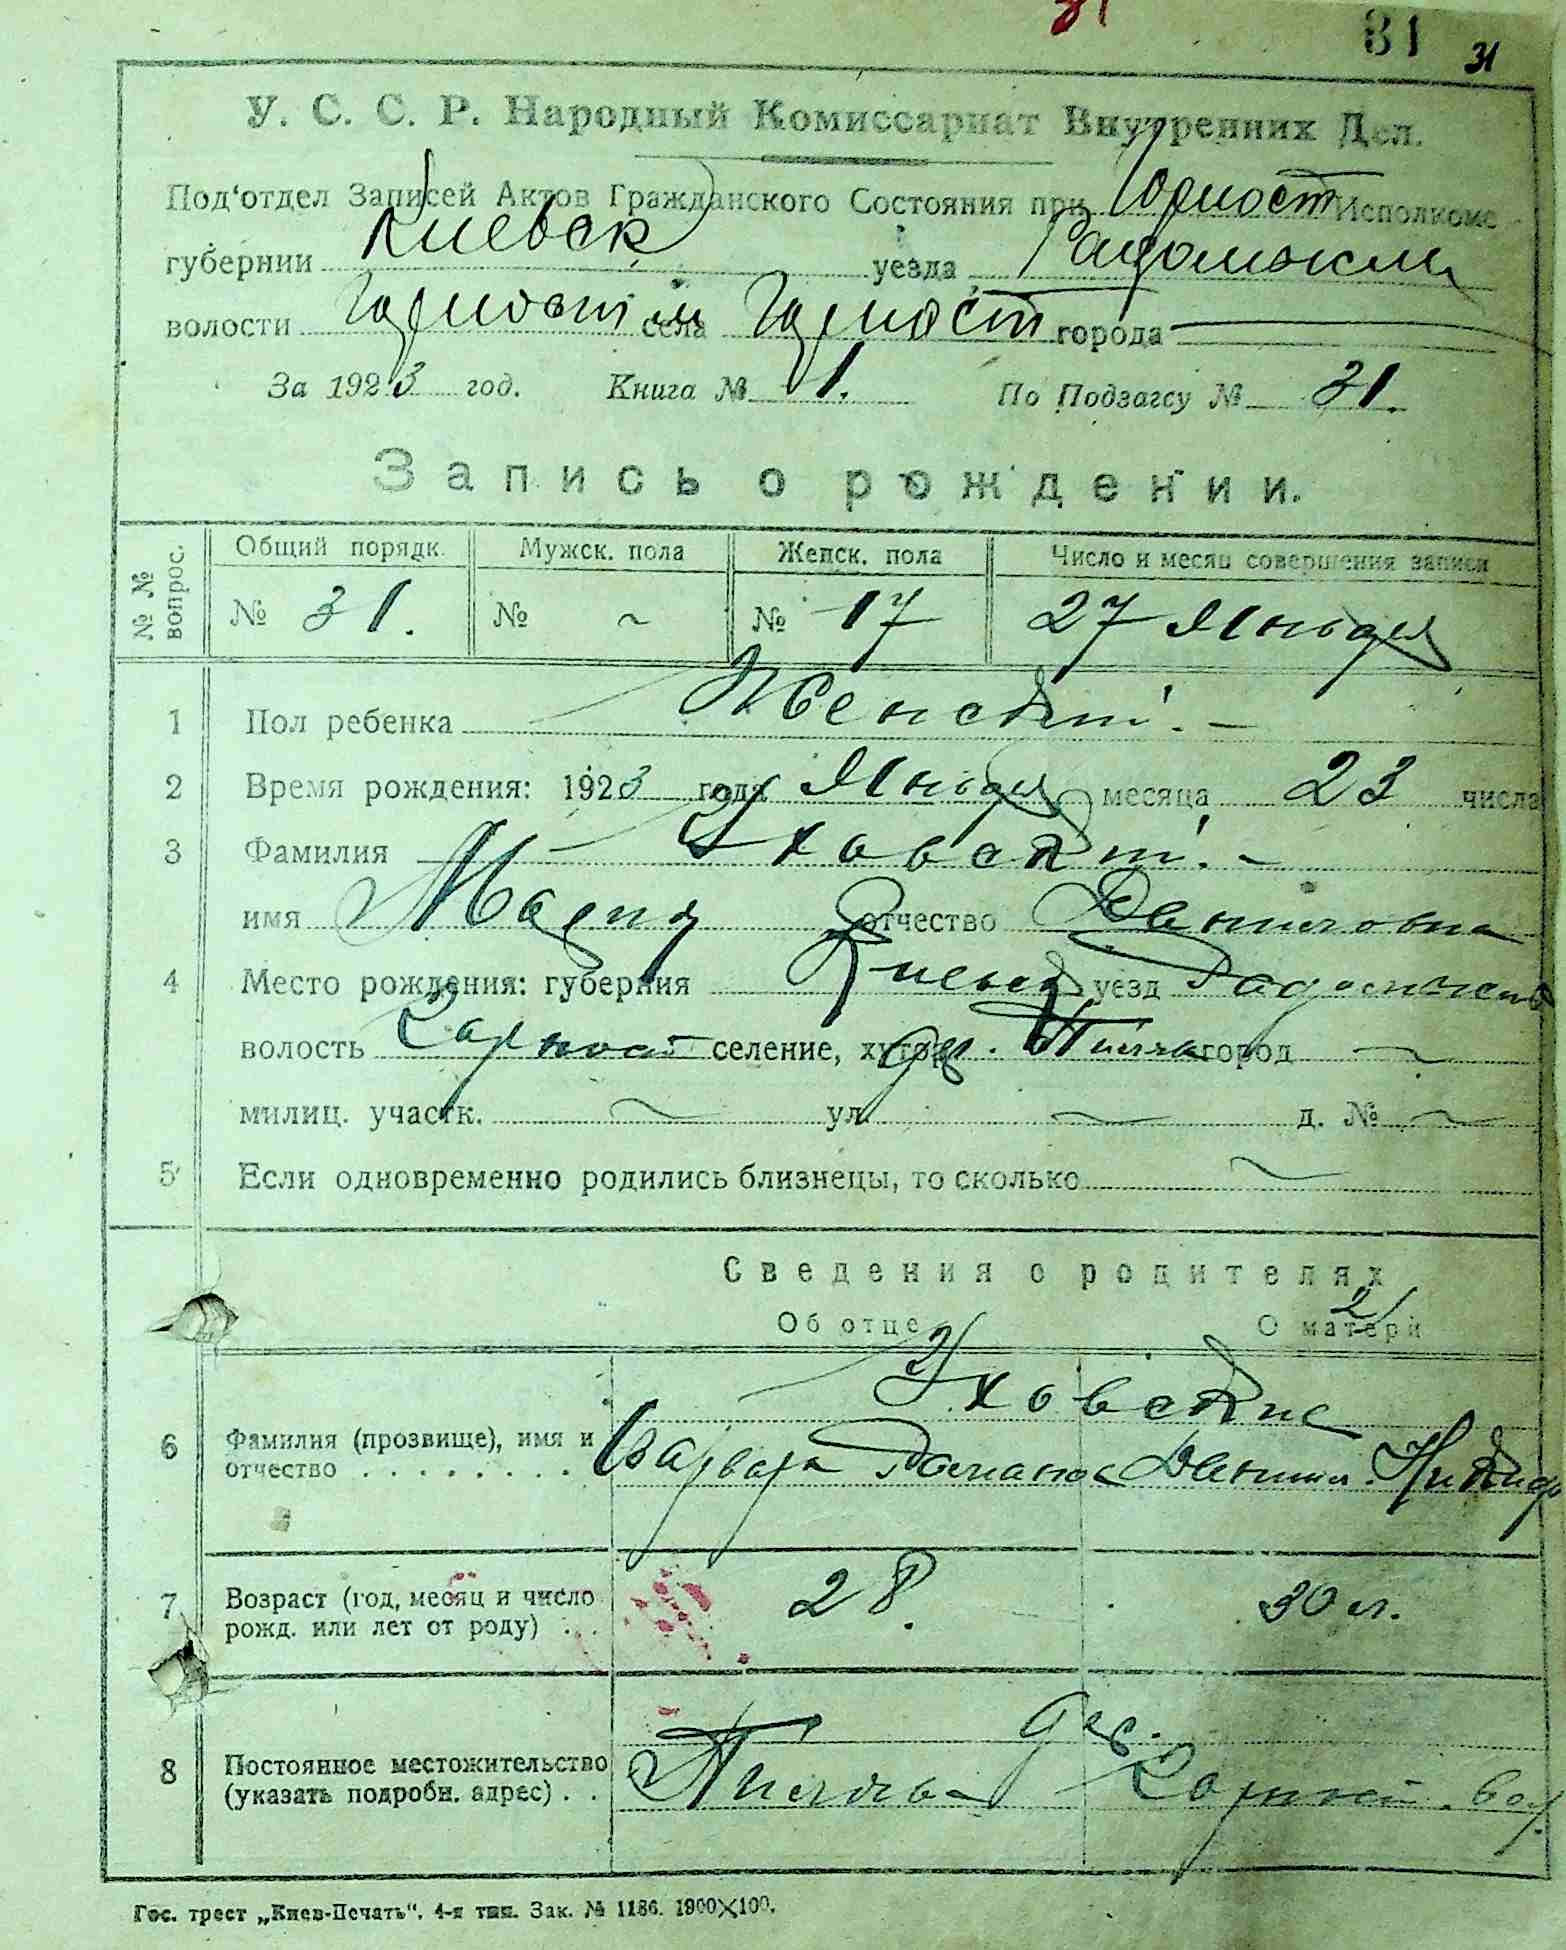 31
81 31
У. С. С. Р. Народный Комиссариат Внутренних Дел.
Под'отдел Записей Актов Гражданского Состояния при Горност Исполкоме
губернии Киевск уезда Радомысл
волости Горност села Горност города
За 1923 год. Книга № 1. По Подзагсу № 31.
Запись о рождении.
№ № вопрос. Общий порядк. Мужск. пола Женск. пола Число и месяц совершения записи
№ 31. № ~ № 17 27 Января
1 Пол ребенка Женский. –
2 Время рождения: 1923 года Января месяца 23 числа
3 Фамилия Уховский. –
имя Мария отчество Даниловна
4 Место рождения: губерния Киевск уезд
волость Горност селение, хутор город ~
милиц. участк. ~ ул. ~ д. № ~
5 Если одновременно родились близнецы, то сколько ~
Сведения о родителях
Об отце О матери
Уховские
6 Фамилия (прозвище), имя и
отчество . . . . . . . . . Варвара Данил
7 Возраст (год, месяц и число 28. 30 л.
рожд. или лет от роду) . . .
дер.
8 Постоянное местожительство
(указать подробн. адрес) . . Горност. вол.
Гос. трест „Киев-Печать“. 4-я тип. Зак. № 1186. 1900×100.